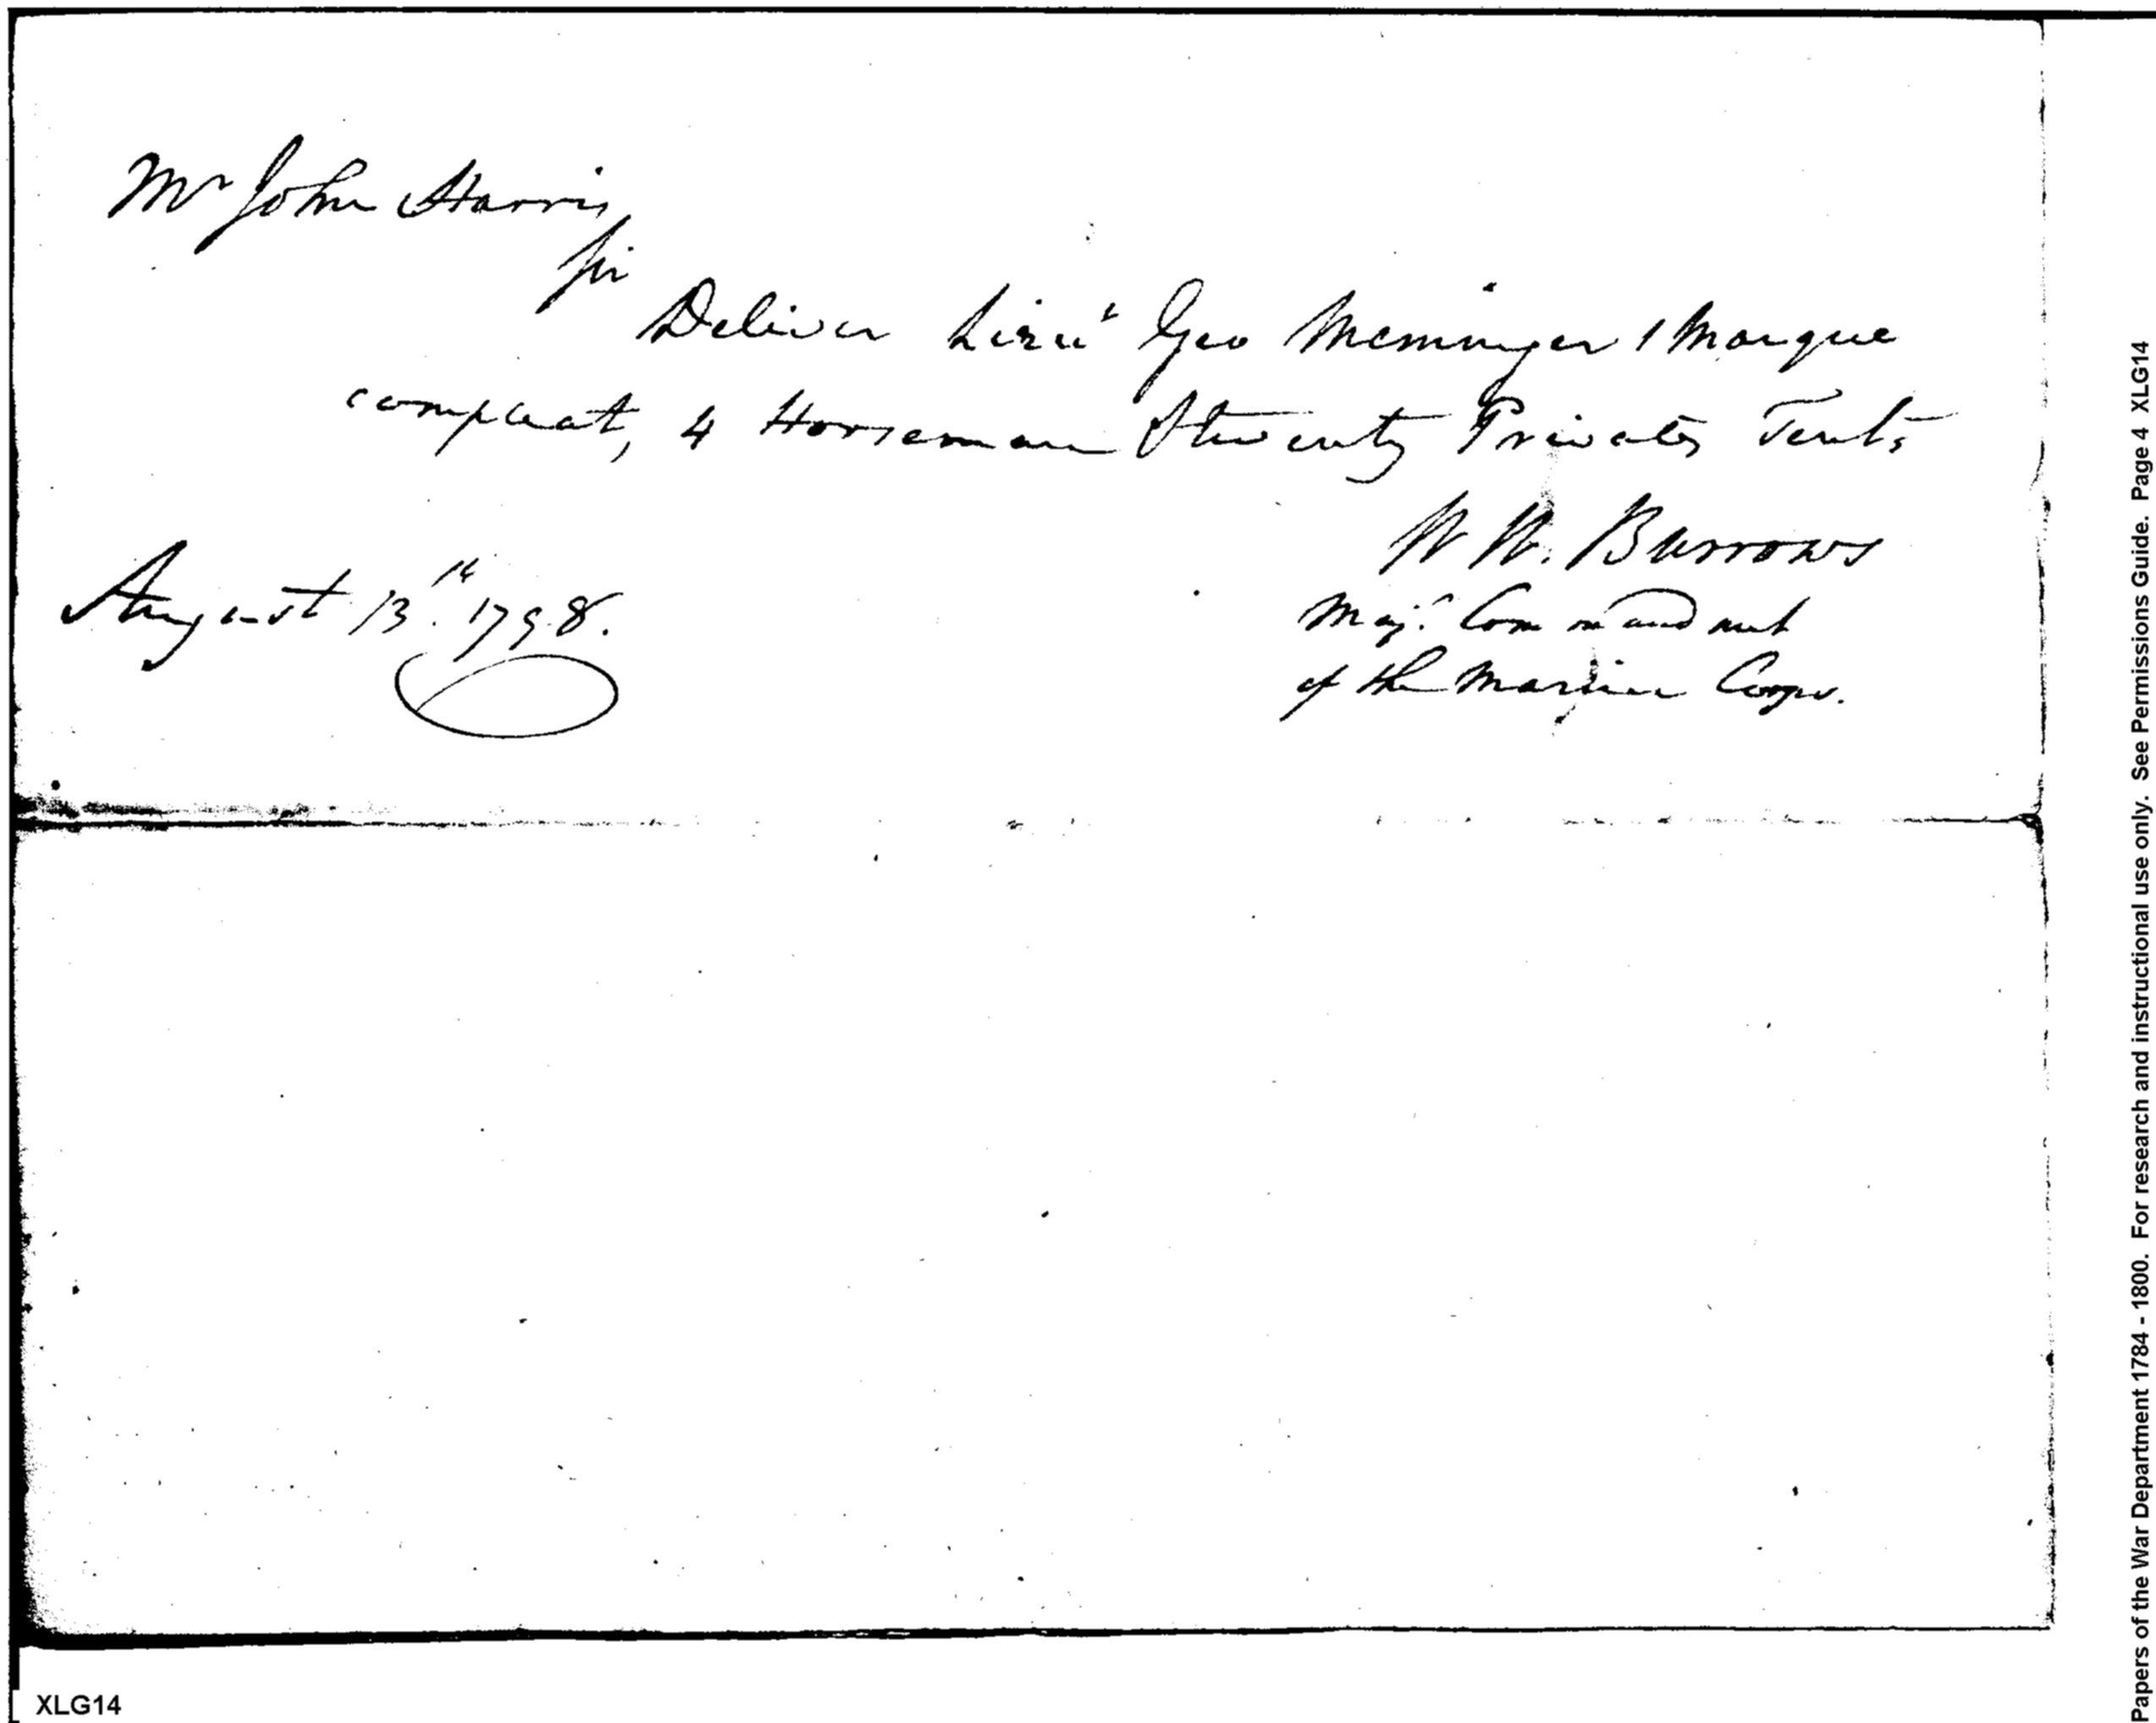 Mr John Harris
Sir
Deliver Lieut Geo Memminger 1 Marque
compleat, 4 Horseman & twenty Privates Tents
W W. Burrows
August 13th. 1798.
Majr. Commandant
of the Marine Corps.
XLG14
Papers of the War Department 1784 - 1800. For research and instructional use only. See Permissions Guide. Page 4 XLG14